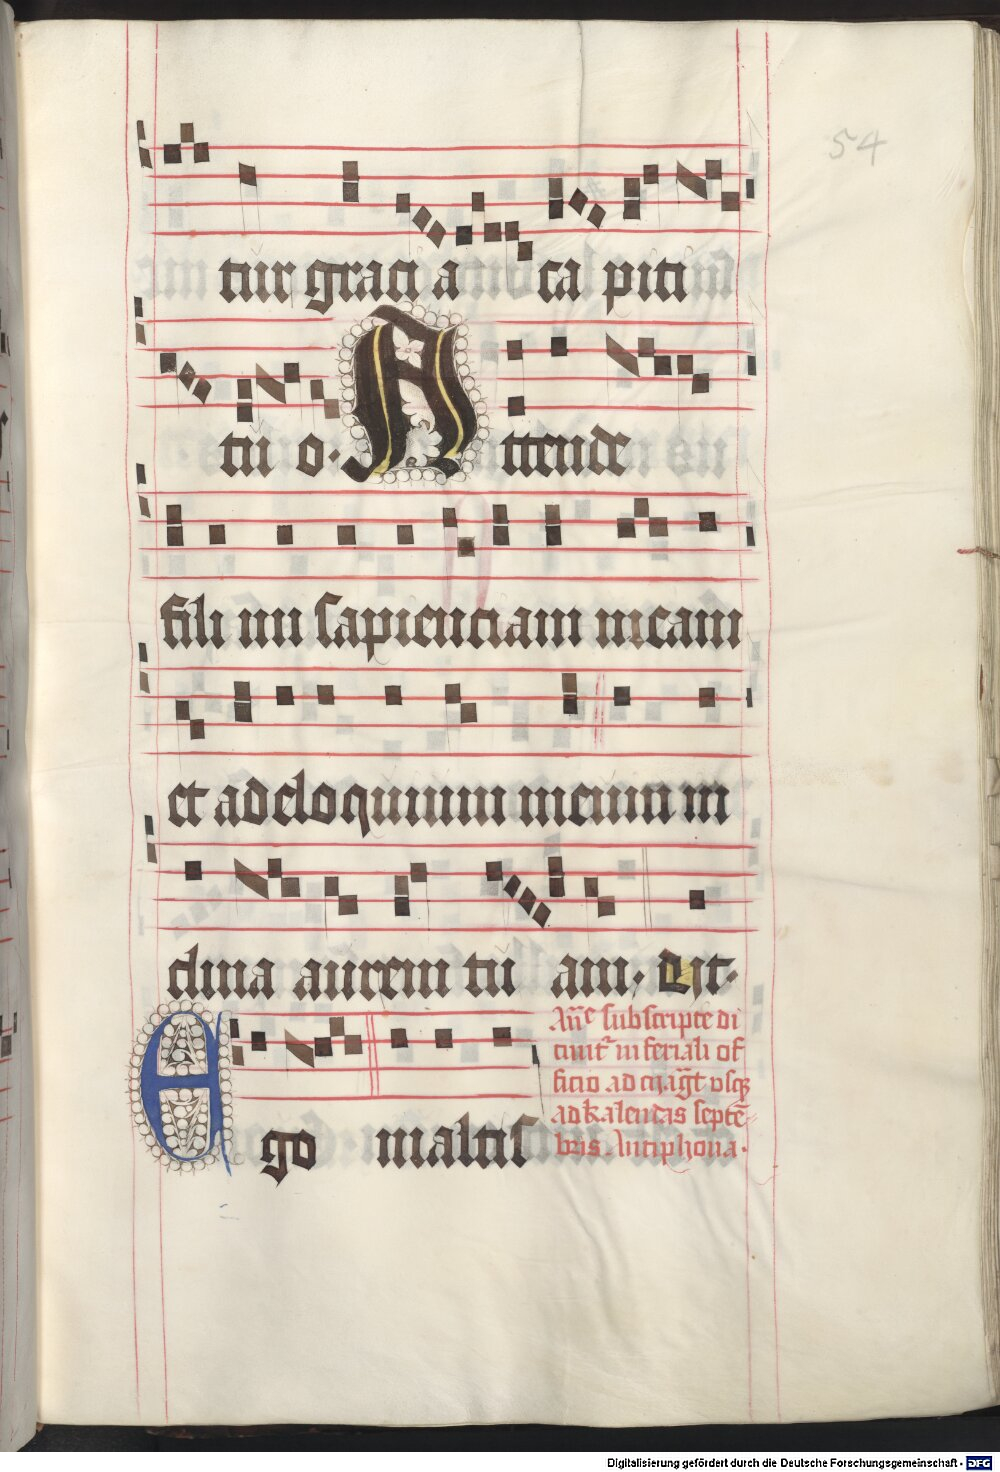 54
tur graci a ca piti
tu o. Attende
fili mi sapienciam meam
et ad eloquium meum in
clina aurem tu am. Dit.
Ego in altis
An̄e subscripte di
cunt͛ in feriali of
ficio ad mag̅t vsq̨
ad kalendas septē
bris. Antiphona.
Digitalisierung gefördert durch die Deutsche Forschungsgemeinschaft - DFG